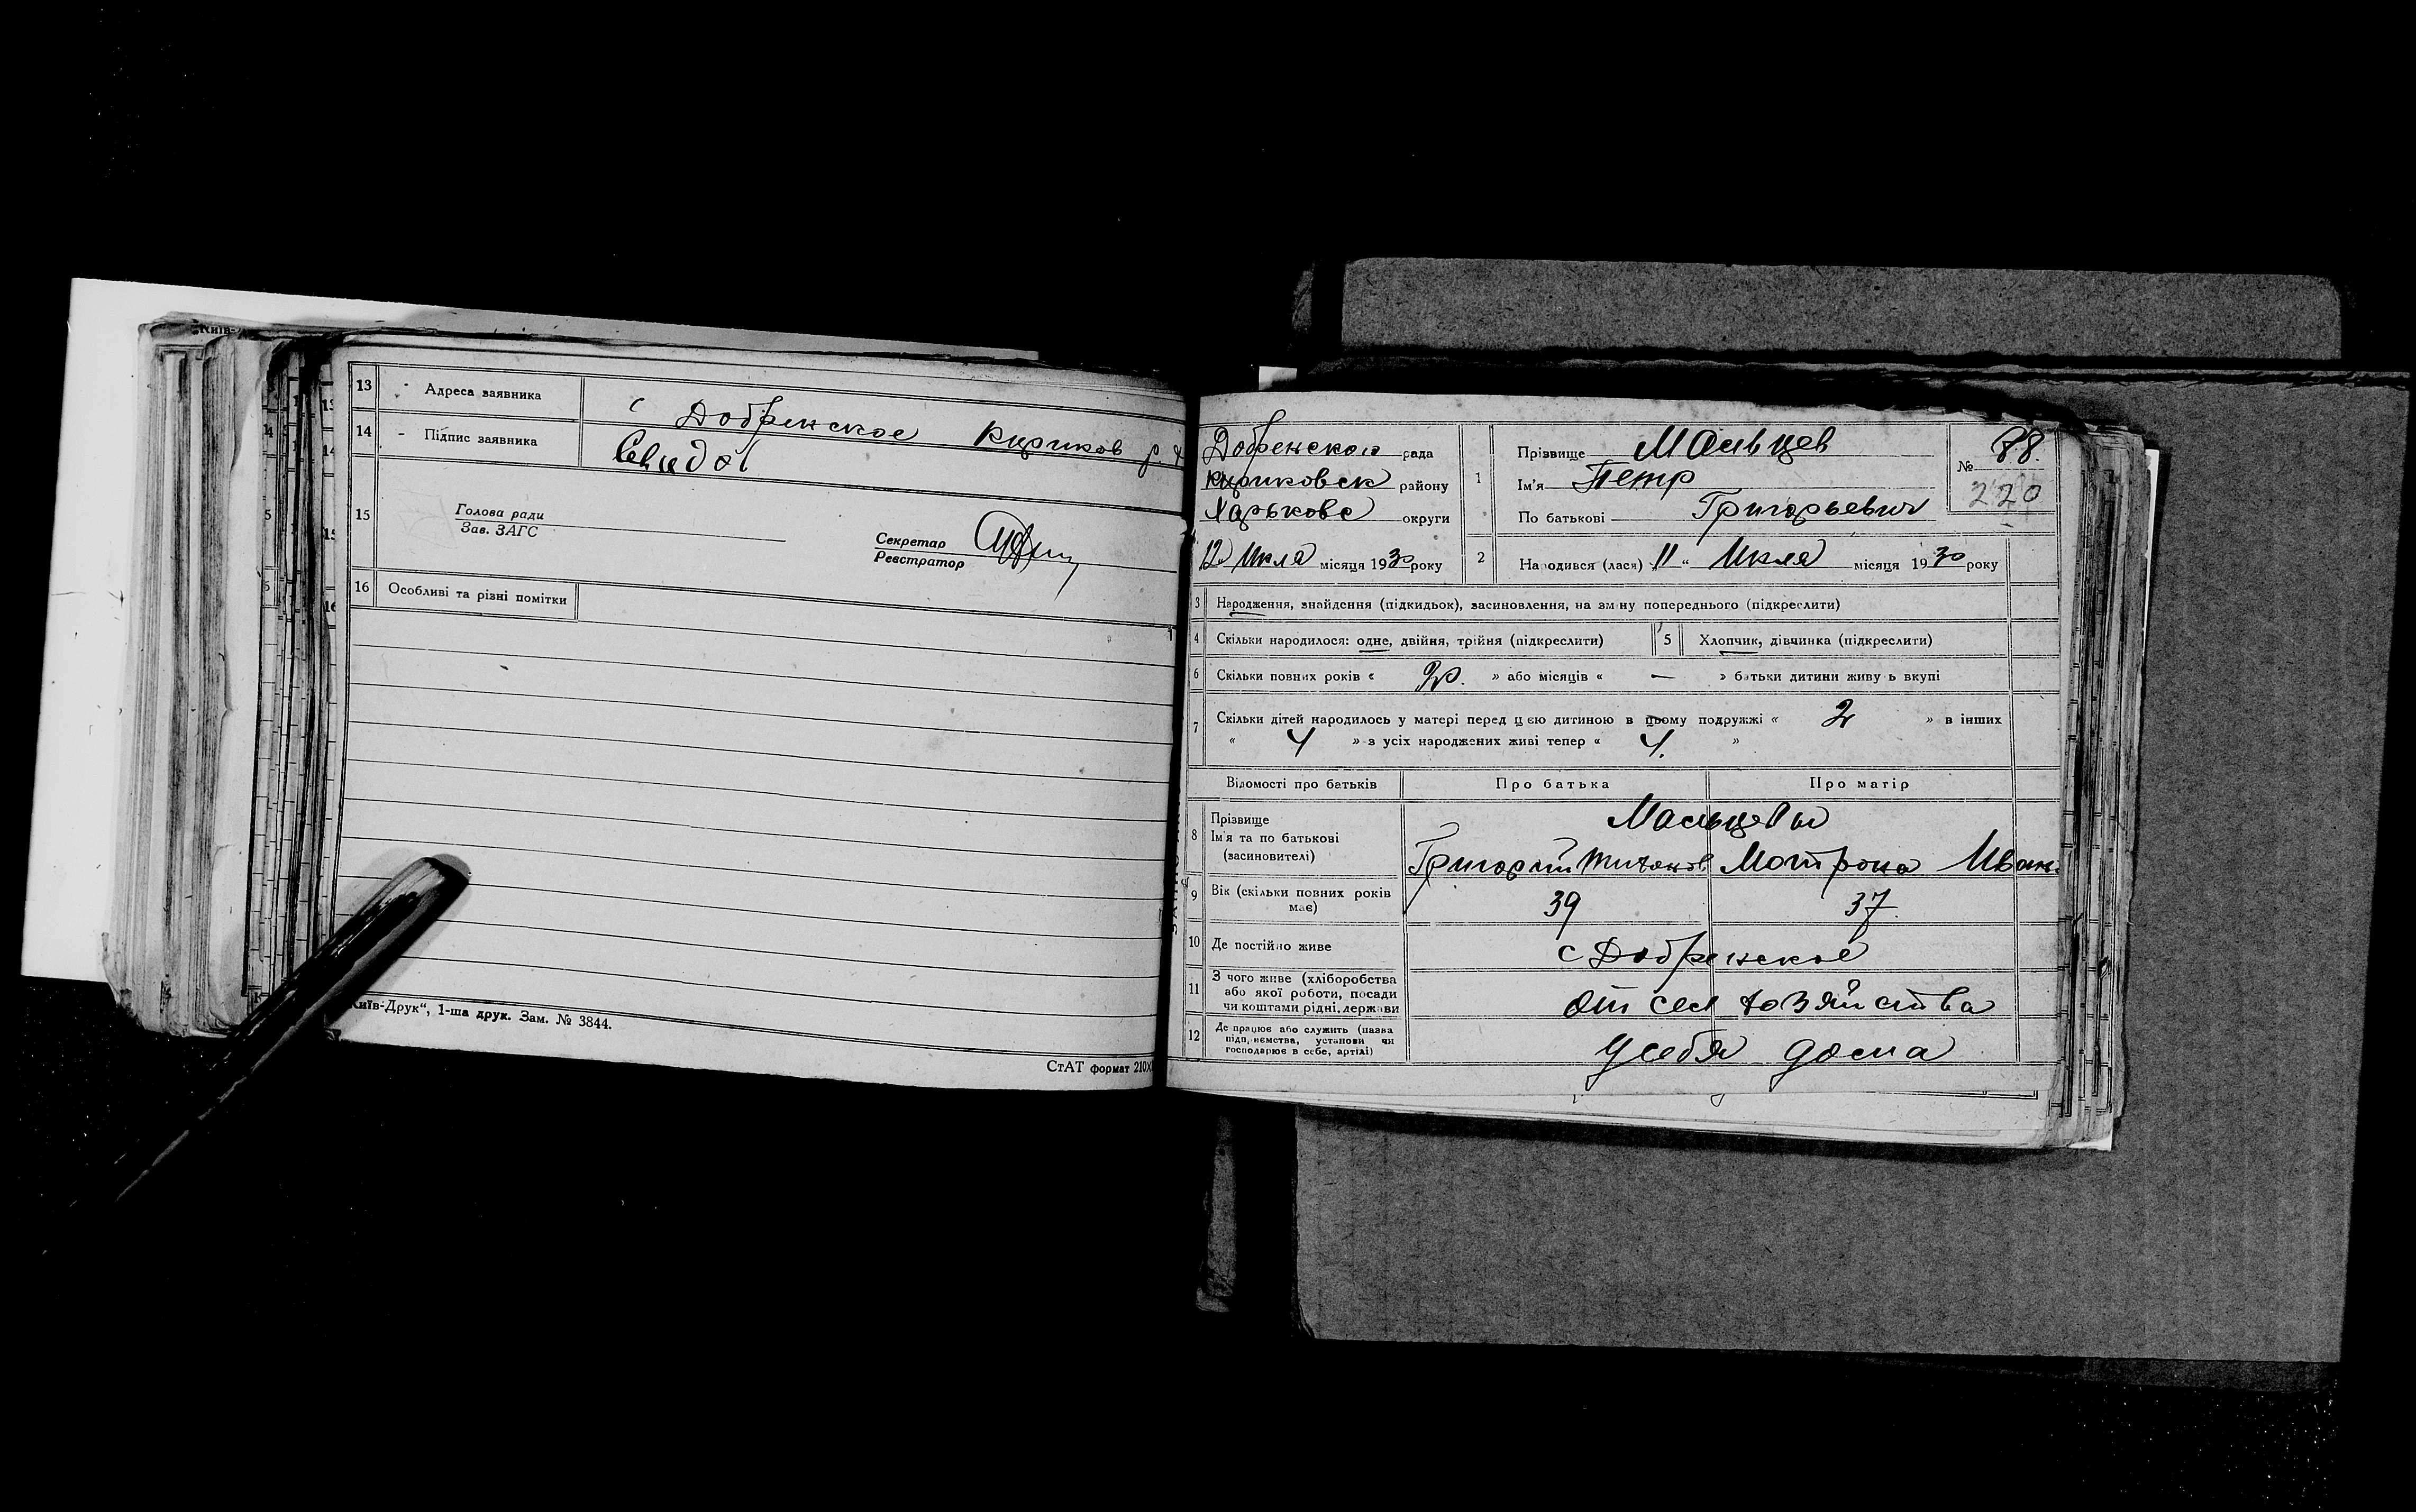 Київ-
13 Адреса заявника с Добренское Кириков р.
14 Підпис заявника
15 Голова ради
Зав. ЗАГС
Секретар
Реєстратор
16 Особливі та різні помітки
Київ-Друк“, 1-ша друк. Зам. № 3844.
СтАТ формат 210×
Добренской рада
район у
Харьковс округи
12 Июля місяця 1930 року
1 Прізвище Мальцев
Ім'я Петр
По батькові Григорьевич
№ 88.
220
2 Народився (лася) „11“ Июля місяця 1930 року
3 Народження, знайдення (підкидьок), засиновлення, на зміну попереднього (підкреслити)
4 Скільки народилося: одне, двійня, трійня (підкреслити) 5 Хлопчик, дівчинка (підкреслити)
6 Скільки повних років « » або місяців « — » батьки дитини живуть вкупі
7 Скільки дітей народилось у матері перед цією дитиною в цьому подружжі « 2 » в інших
« 4 » з усіх народжених живі тепер « 4. »
Відомості про батьків Про батька Про матір
8 Прізвище Мальцевы
Ім'я та по батькові
(засиновителі) Григорий Тихонов Мотрона Иван
9 Вік (скільки повних років має) 39 37
10 Де постійно живе с Добренское
11 З чого живе (хліборобства
або якої роботи, посади
чи коштами рідні, держави от сел хозяйства
12 Де працює або служить (назва
підприємства, установи чи
господарює в себе, артілі) у себя дома